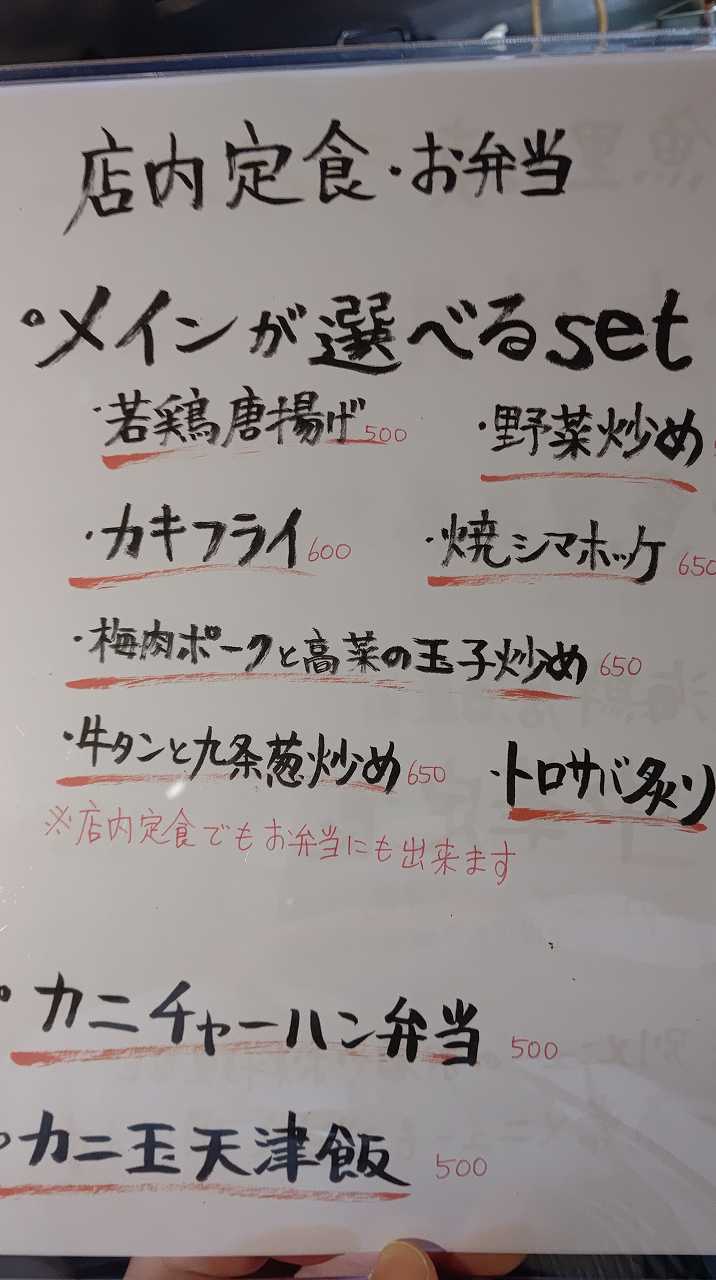 店内定食・お弁当
○メインが選べるset
・若鶏唐揚げ 500 ・野菜炒め
・カキフライ 600 ・焼シマホッケ 650
・梅肉ポークと高菜の玉子炒め 650
・牛タンと九条葱炒め 650 ・トロサバ炙り
※店内定食でもお弁当にも出来ます
○カニチャーハン弁当 500
○カニ玉天津飯 500